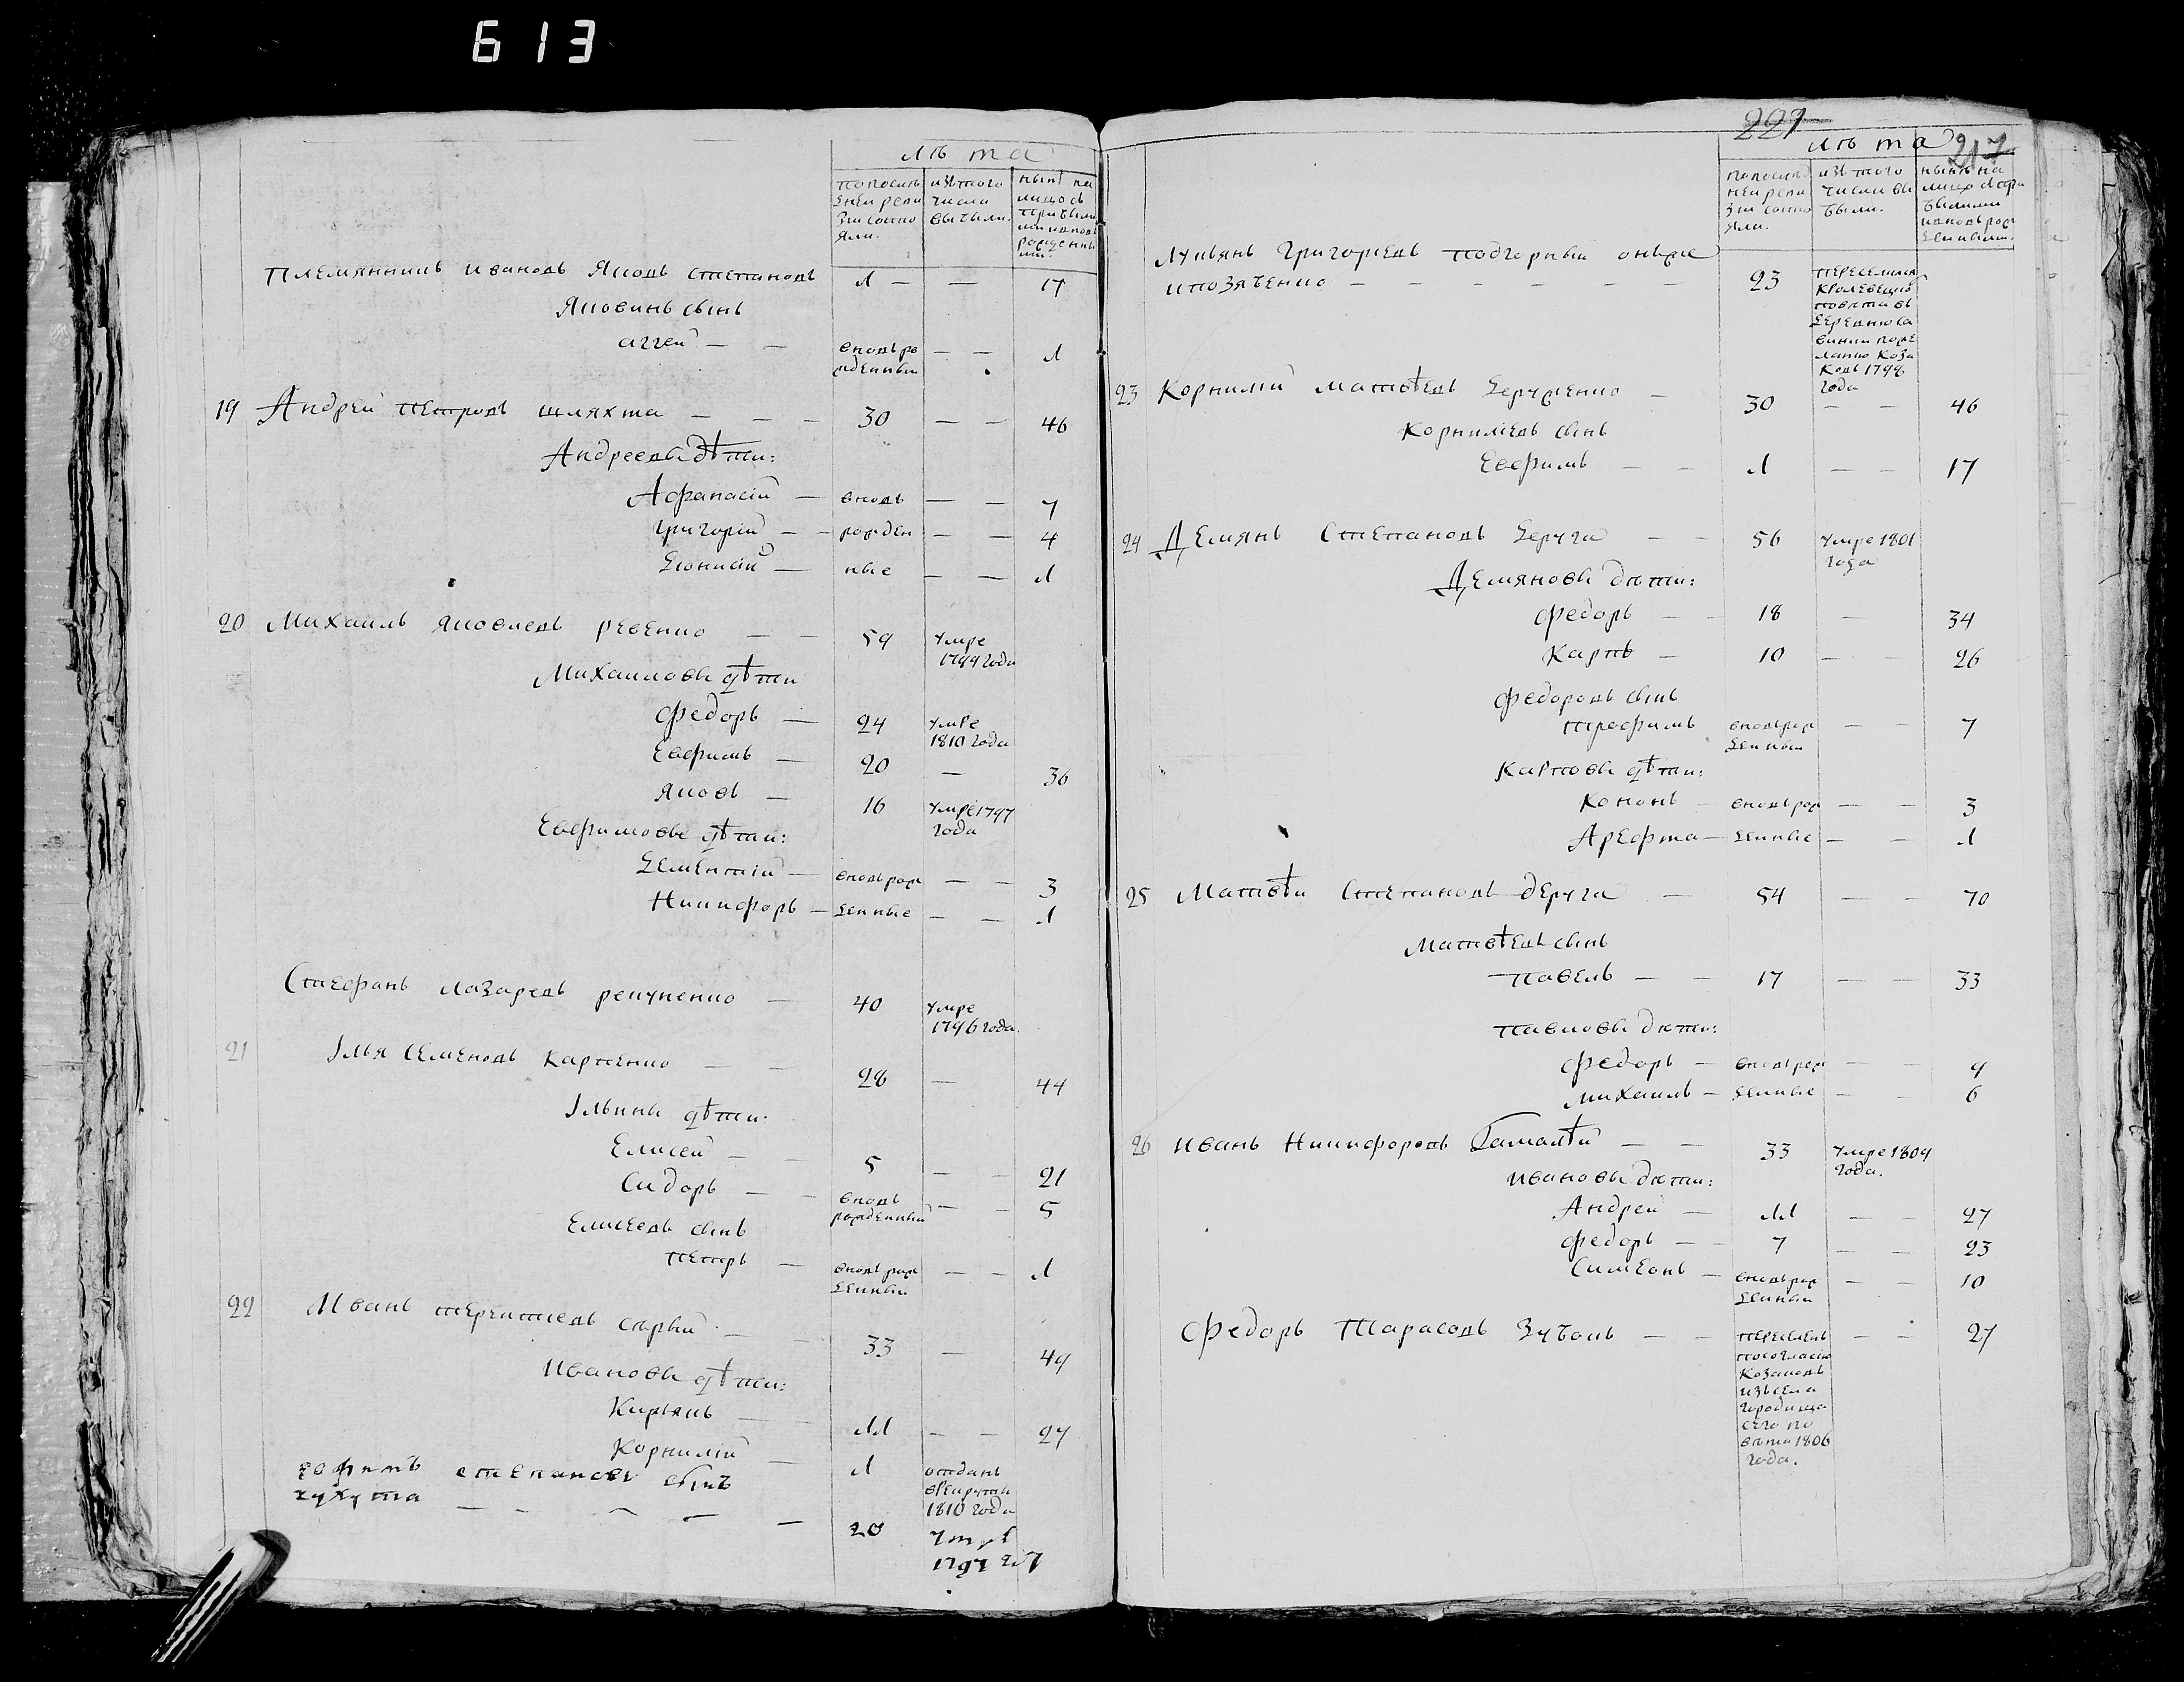 613
лѣта
по послѣ
дней реви
зіи состо
яли.
изъ того
числа
выбыли.
нынѣ на
лицо съ
прибылы
ми и вновь
рожденны
ми.
племянникъ ивановъ Яковъ степановъ 1 — — 17
Яковинъ сынъ
аггей — — вновь ро
жденный — — 1
19 Андрей петровъ шляхта — — — 30 — — 46
Андреевы дѣти:
Афанасій — вновь — — 7
григорій — — рожден — — 4
Діонисій — ные — — 1
20 Михаилъ яковлевъ ревенко — — 59 умре
1799 года
Михаиловы дѣти
федоръ — 24 умре
1810 года
Евфимъ — 20 — 36
яковъ — 16 умре 1797
года
Евфимовы дѣти:
Дементій — вновь рож — — 3
Никифоръ — денные — — 1
Стефанъ лазаревъ репукенко — 40 умре
1796 года.
21 Ілья семеновъ карпенко — — 28 — 44
Ільины дѣти:
Елисей — 5 — — 21
Сидоръ — — вновь
рожденный — — 5
Елисеевъ сынъ
петръ — вновь рож
денный — — 1
22 Иванъ терентіевъ сѣрый — — 33 — 49
Ивановы дѣти:
Кирьякъ — 11 — — 27
Корнилій — 1 отданъ
в рекруты
1810 года
ефимъ степановъ сынъ
кухута — — — — — 20 умре
1797 го
221
217
лѣта
по послѣд
ней реви
зіи состо
яли.
изъ того
числа вы
были.
нынѣ на
лицо съ при
былыми
и вновь рож
денными.
Лукьянъ григорьевъ подгорный онъже
и позябенко — — — — — — 23 переселился
кролевецкаго
повѣта въ
деревню са
винки по же
ланію коза
ковъ 1798
года
23 Корнилій матвѣевъ Деруженко — 30 — — 46
Корниліевъ сынъ
Евфимъ — — 1 — — 17
24 Демянъ Степановъ Деруга — — 56 умре 1801
года
Демяновы дѣти:
федоръ — — 18 — 34
Карпъ — 10 — — 26
федоровъ сынъ
трофимъ вновь рож
денный — — 7
Карповы дѣти:
Кононъ — вновь рож — — 3
Арефта — денные — — 1
25 Матвѣй Степановъ деруга — 54 — — 70
Матвѣевъ сынъ
павелъ — — 17 — — 33
павловы дѣти:
федоръ — вновь рож — 9
михаилъ — денные — — 6
26 иванъ Никифоровъ Гамалѣй — — 33 умре 1809
года.
ивановы дѣти:
Андрей — 11 — — 27
федоръ — — 7 — — 23
Симеонъ — вновь рож
денный — — 10
Федоръ Тарасовъ Зубокъ — — переселенъ
по согласію
козаковъ
изъ села
городища
сего по
вѣта 1806
года. — — 27